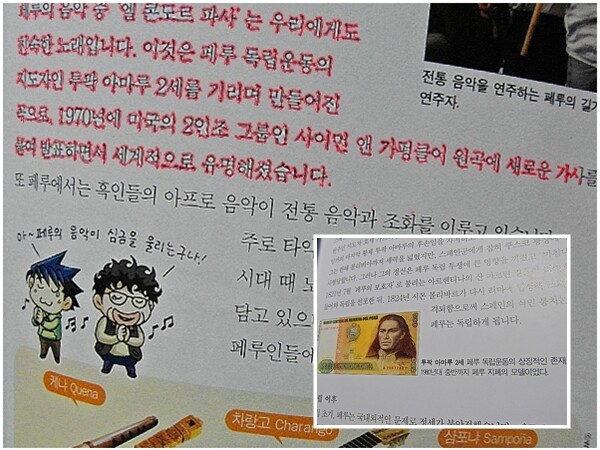 페루의 음악 중 '엘 콘도르 파사'는 우리에게도
친숙한 노래입니다. 이것은 페루 독립운동의
지도자인 투팍 아마루 2세를 기리며 만들어진
곡으로, 1970년에 미국의 2인조 그룹인 사이먼 앤 가펑클이 원곡에 새로운 가사를
붙여 발표하면서 세계적으로 유명해졌습니다.
또 페루에서는 흑인들의 아프로 음악이 전통 음악과 조화를 이루고
주로 타악
시대 때 노
담고 있으
페루인들에
전통 음악을 연주하는 페루의 길거
연주자.
아~ 페루의 음악이 심금을 울리는구나!
케나 Quena
차랑고 Charango
삼포냐 Samponia
그러나 그의 정신은 페루 독립 투쟁에 큰 영향을
1821년 7월 '페루의 보호자'로 불리는 아르헨티나의 산 마르틴
독립을 선포한 뒤, 1824년 시몬 볼리바르가 다시
격퇴함으로써 스페인의 식민 통치
페루는 독립하게 됩니다.
투팍 아마루 2세 페루 독립운동의 상징적인 존재
1980년대 중반까지 페루 지폐의 모델이었다.
이후
초기, 페루는 국내외적인 문제로 정세가